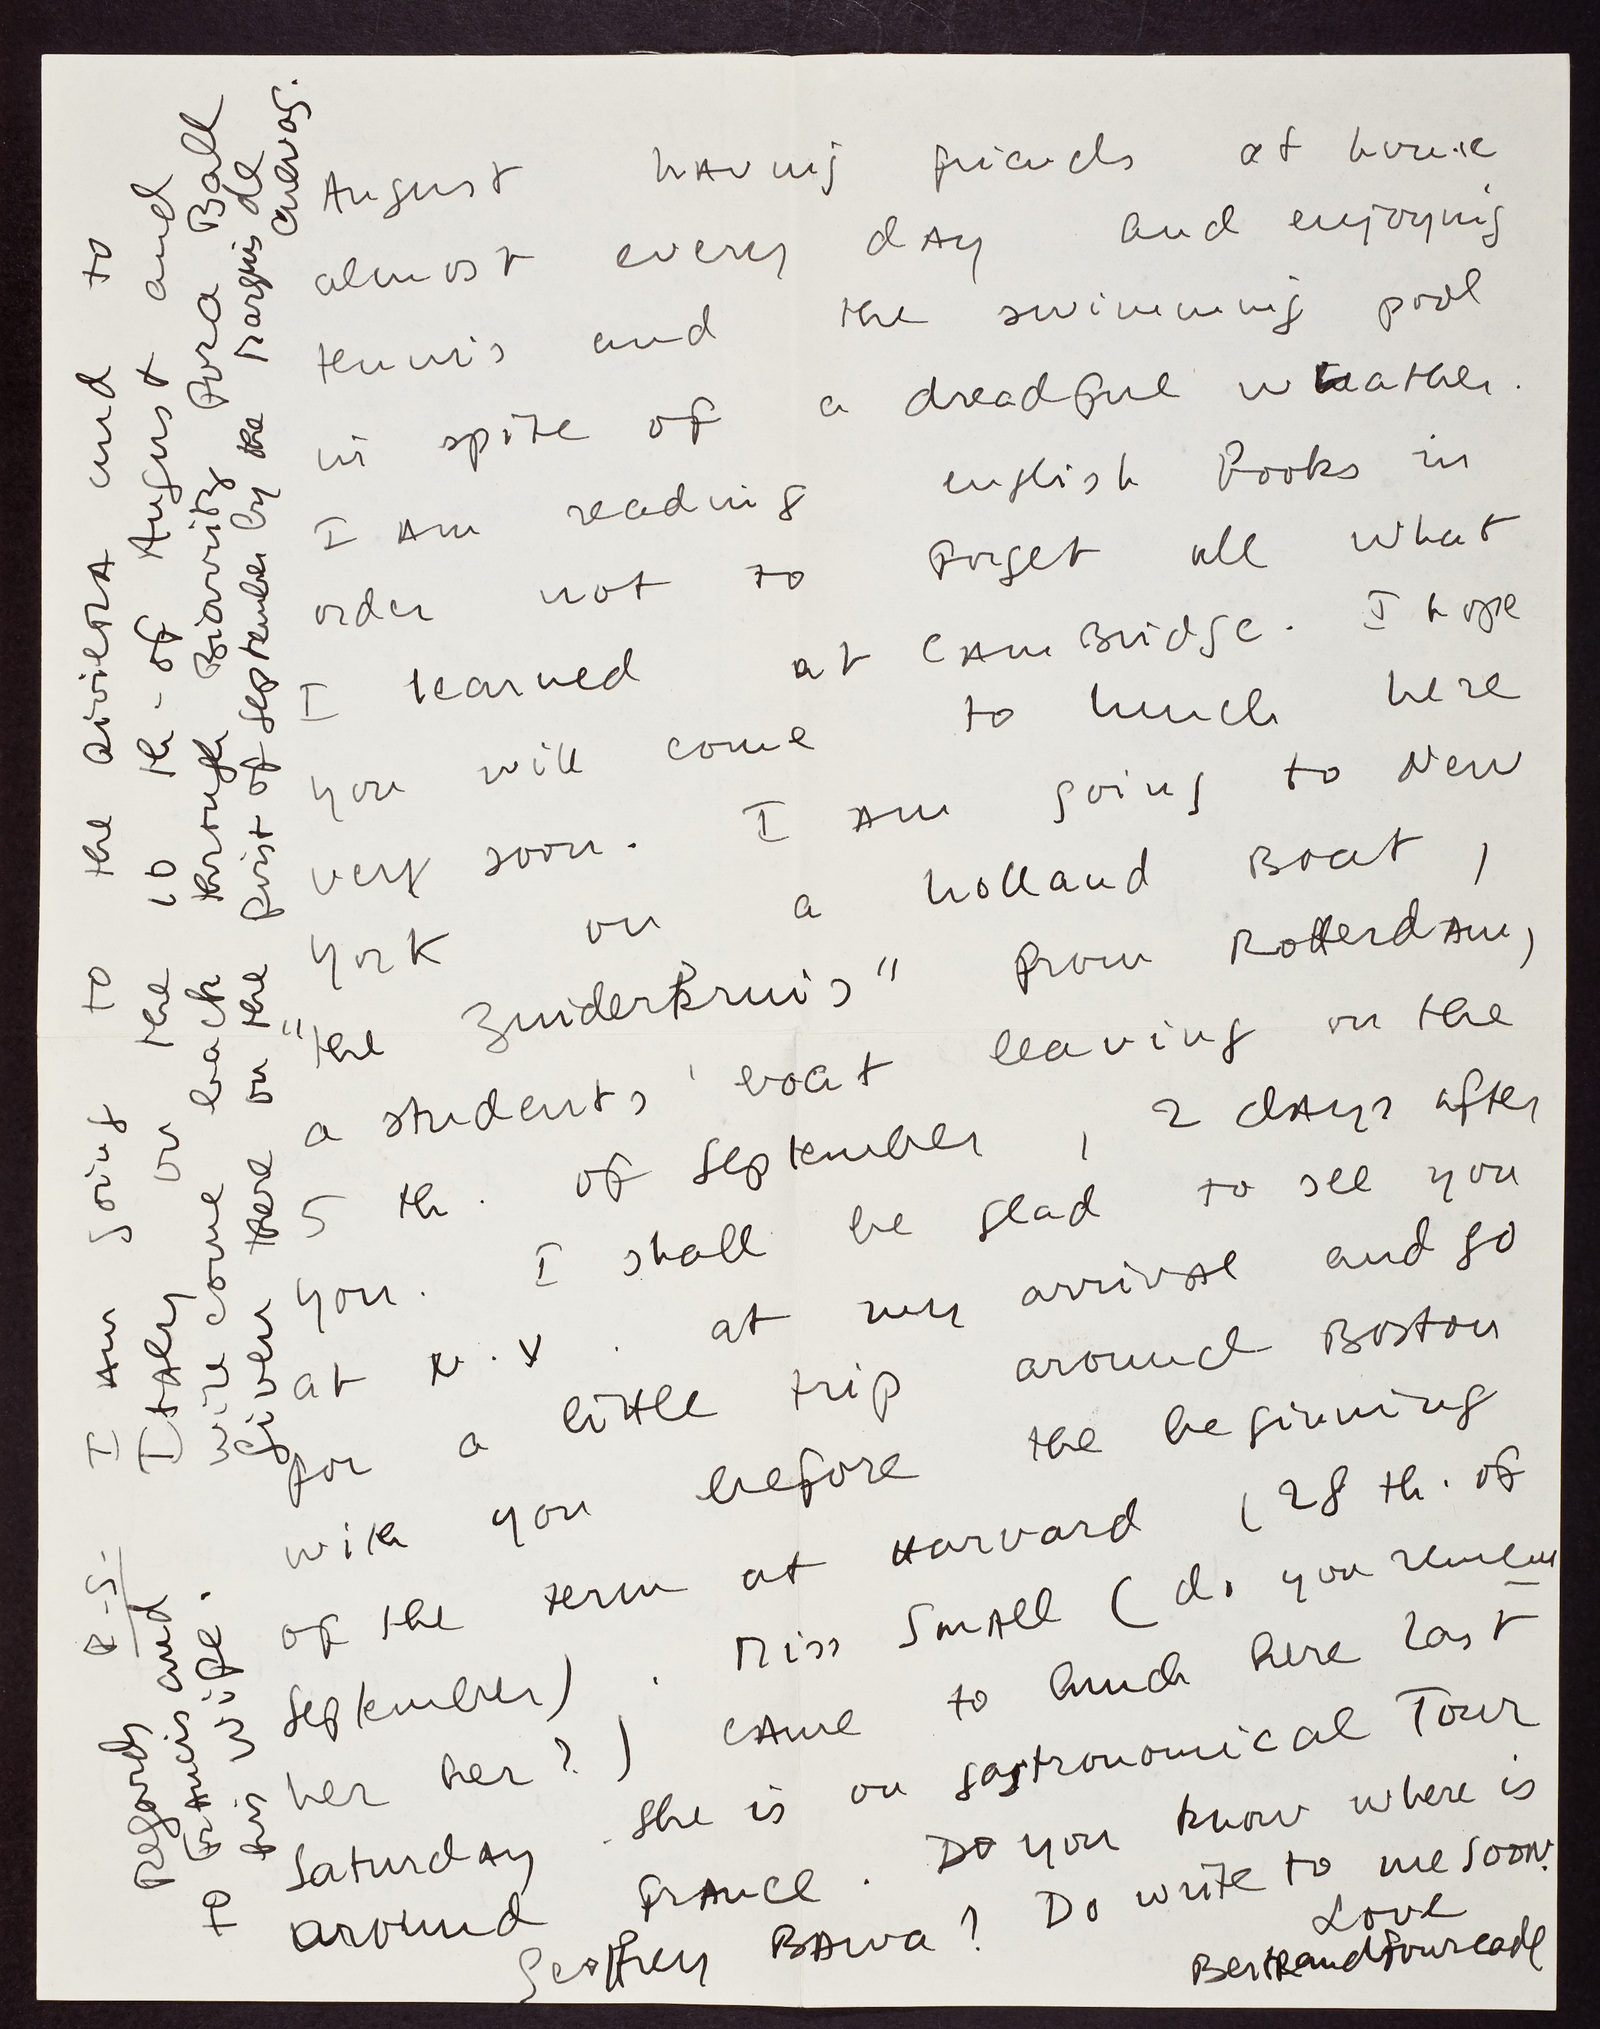 August having friends at home
almost every day and enjoying
tennis and the swimming pool
in spite of a dreadful weather.
I am reading english books in
order not to forget all what
I learned at Cambridge. I hope
you will come to lunch here
very soon. I am going to New
York on a holland Boat,
"the Zuiderkruis" from Rotterdam,
a students' boat leaving on the
5 th. of September, 2 days after
you. I shall be glad to see you
at N.Y. at my arrival and go
for a little trip around Boston
with you before the beginning
of the term at Harvard (28 th. of
September). Miss Small (do you remem
ber her?) came to lunch here last
Saturday. She is on gastronomical Tour
around France. Do you know where is
Geoffrey Bawa? Do write to me soon.
Love
Bertrand
P.S. I am going to the Riviera and to
Italy on the 10 th. of August and
will come back through Biarritz for a Ball
given there on the first of September by the Marquis de
Cuevas.
Regards
to Francis and
his wife.